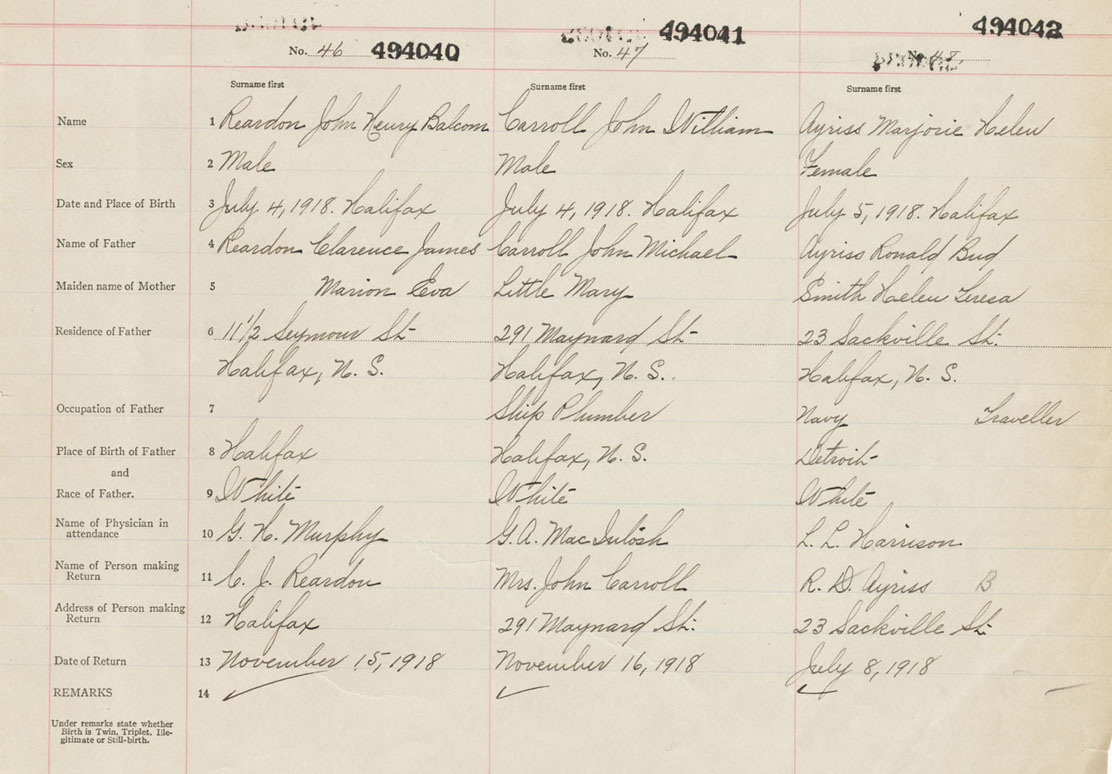 No. 46 494040 No. 47 494041 No. 48. 494042
Surname first Surname first Surname first
Name 1 Reardon John Henry Balcom Carroll John William Ayriss Marjorie Helen
Sex 2 Male Male Female
Date and Place of Birth 3 July 4, 1918. Halifax July 4, 1918. Halifax July 5, 1918. Halifax
Name of Father 4 Reardon Clarence James Carroll John Michael Ayriss Ronald Bud
Maiden name of Mother 5 Marion Eva Little Mary Smith Helen Teresa
Residence of Father 6 11 1/2 Seymour St 291 Maynard St. 23 Sackville St.
Halifax, N. S. Halifax, N. S. Halifax, N. S.
Occupation of Father 7 Ship Plumber Navy Traveller
Place of Birth of Father 8 Halifax Halifax, N. S. Detroit
and
Race of Father. 9 White White White
Name of Physician in
attendance 10 G. H. Murphy G. A. MacIntosh L. L. Harrison
Name of Person making
Return 11 C. J. Reardon Mrs. John Carroll R. D. Ayriss B
Address of Person making
Return 12 Halifax 291 Maynard St. 23 Sackville St.
Date of Return 13 November 15, 1918 November 16, 1918 July 8, 1918
REMARKS 14 ✓ ✓ ✓
Under remarks state whether
Birth is Twin, Triplet, Ille-
gitimate or Still-birth.